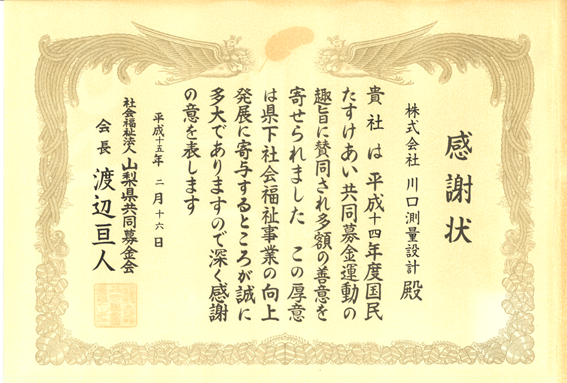 感謝状
株式会社 川口測量設計 殿
貴社は平成十四年度国民
たすけあい共同募金運動の
趣旨に賛同され多額の善意を
寄せられました この厚意
は県下社会福祉事業の向上
発展に寄与するところが誠に
多大でありますので深く感謝
の意を表します
平成十五年 二月十六日
社会福祉法人 山梨県共同募金会
会長 渡辺亘人